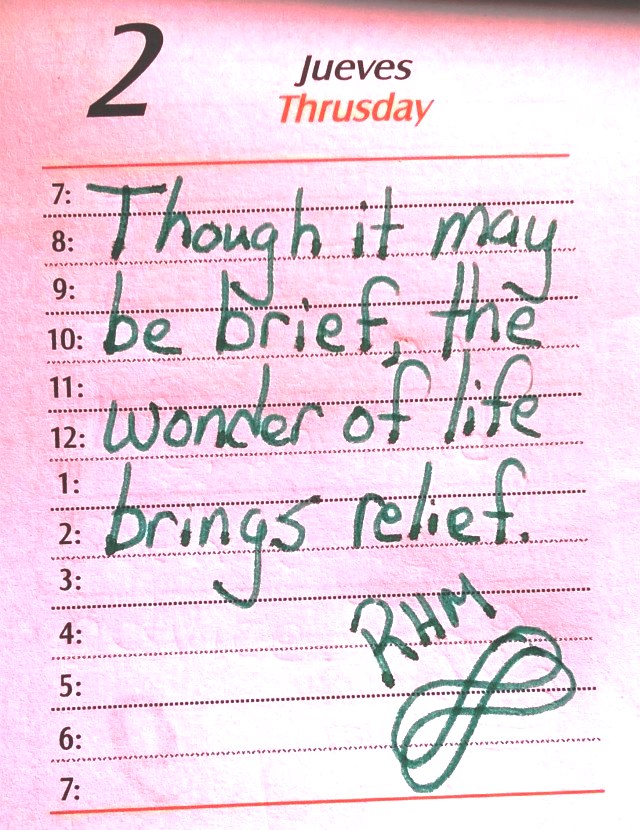 2
Jueves
Thrusday
7: Though it may
8:
9: be brief, the
10:
11: wonder of life
12:
1: brings relief.
2:
3:
4: RHM
5:
6:
7: